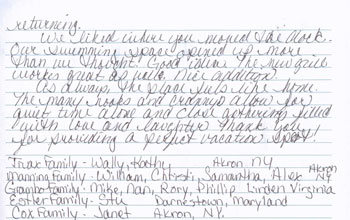 returning.
We liked where you moved the dock.
Our swimming space opened up more
than we thought! Good idea. The new grill
works great as well. Nice addition.
As always, the place feels like home.
The many nooks and crannys allow for
quiet time alone and close gathering filled
with love and laughter. Thank you
for providing a perfect vacation spot!
Triax Family - Wally, Kathy Akron, NY
Manning Family - William, Christi, Samantha, Alex Akron NY
Family - Mike, Nan, Rory, Phillip Linden Virginia
Family - Stu Darnestown, Maryland
Cox Family - Janet Akron, NY.